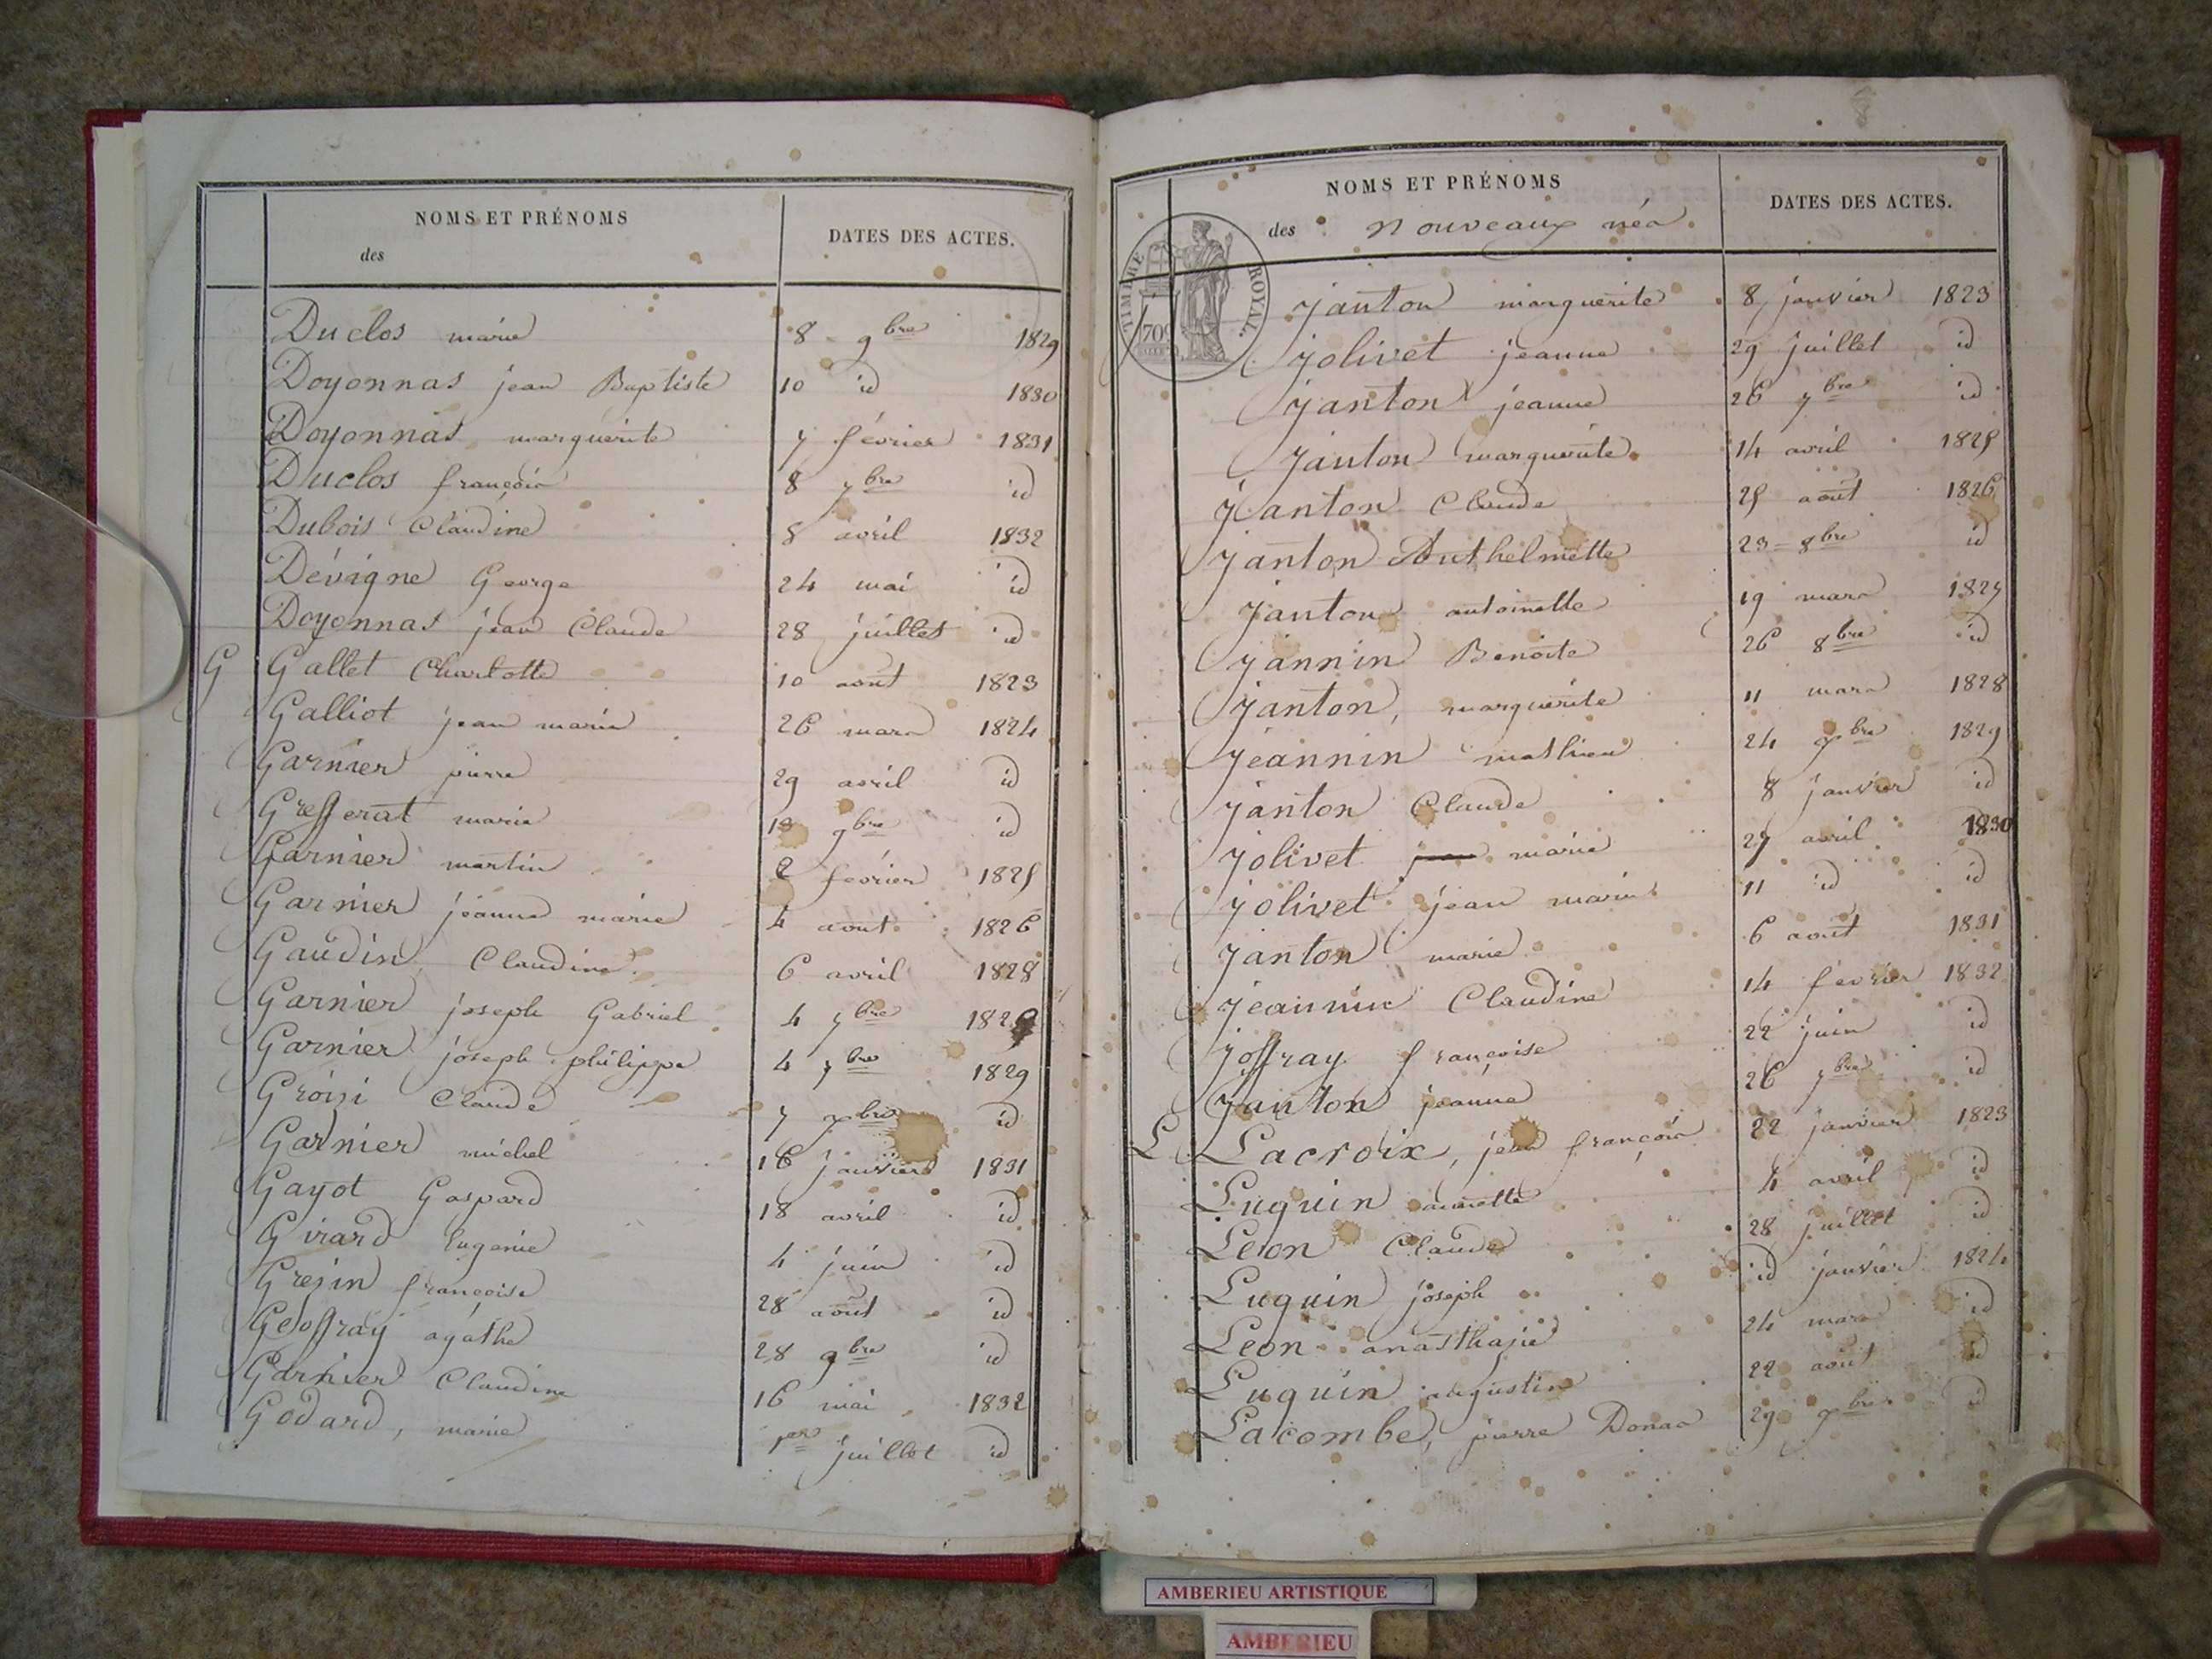 NOMS ET PRÉNOMS
des
DATES DES ACTES.
Duclos marie 8 9bre 1829
Doyonnas jean Baptiste 10 id 1830
Doyonnas marguerite 7 février 1831
Duclos françois 8 7bre id
Dubois Claudine 8 avril 1832
Dévigne George 24 mai id
Doyonnas jean Claude 28 juillet id
G Gallet Charlotte 10 aout 1823
Galliot jean marie 26 mars 1824
Garnier pierre 29 avril id
Grefferat marie 9bre id
Garnier martin 2 février 1825
Garnier jeanne marie 4 aout 1826
Gaudin Claudine 6 avril 1828
Garnier joseph Gabriel 4 7bre 1829
Garnier joseph philippe 4 7bre 1829
Groisi Claude 7 bre id
Garnier michel 16 janvier 1831
Gayot Gaspard 18 avril id
Girard Eugenie 4 juin id
Gresin françoise 28 août id
Geoffray agathe 28 9bre id
Garnier Claudine 16 mai 1832
Godard, marie 1er juillet id
NOMS ET PRÉNOMS
des nouveaux nés
DATES DES ACTES.
TIMBRE ROYAL.
70c
janton marguerite 8 janvier 1823
jolivet jeanne 29 juillet id
janton jeanne 26 7bre id
janton marguerite 14 avril 1825
janton Claude 25 août 1826
janton Anthelmette 23 8bre id
janton antoinette 19 mars 1827
jannin Benoite 26 8bre id
janton, marguerite 11 mars 1828
jeannin mathieu 24 bre 1829
janton Claude 8 janvier id
jolivet marie 27 avril 1830
jolivet jean marie 11 id id
janton marie 6 août 1831
jeannin Claudine 14 février 1832
joffray françoise 22 juin id
janton jeanne 26 7bre id
L Lacroix, jean françois 22 janvier 1823
Luguin annette 4 avril id
Leon Claude 28 juillet id
Luguin joseph id janvier 1824
Leon anasthasie 24 mars id
Luguin augustin 22 aout id
Lacombe, pierre Donas 29 bre id
AMBERIEU ARTISTIQUE
AMBERIEU